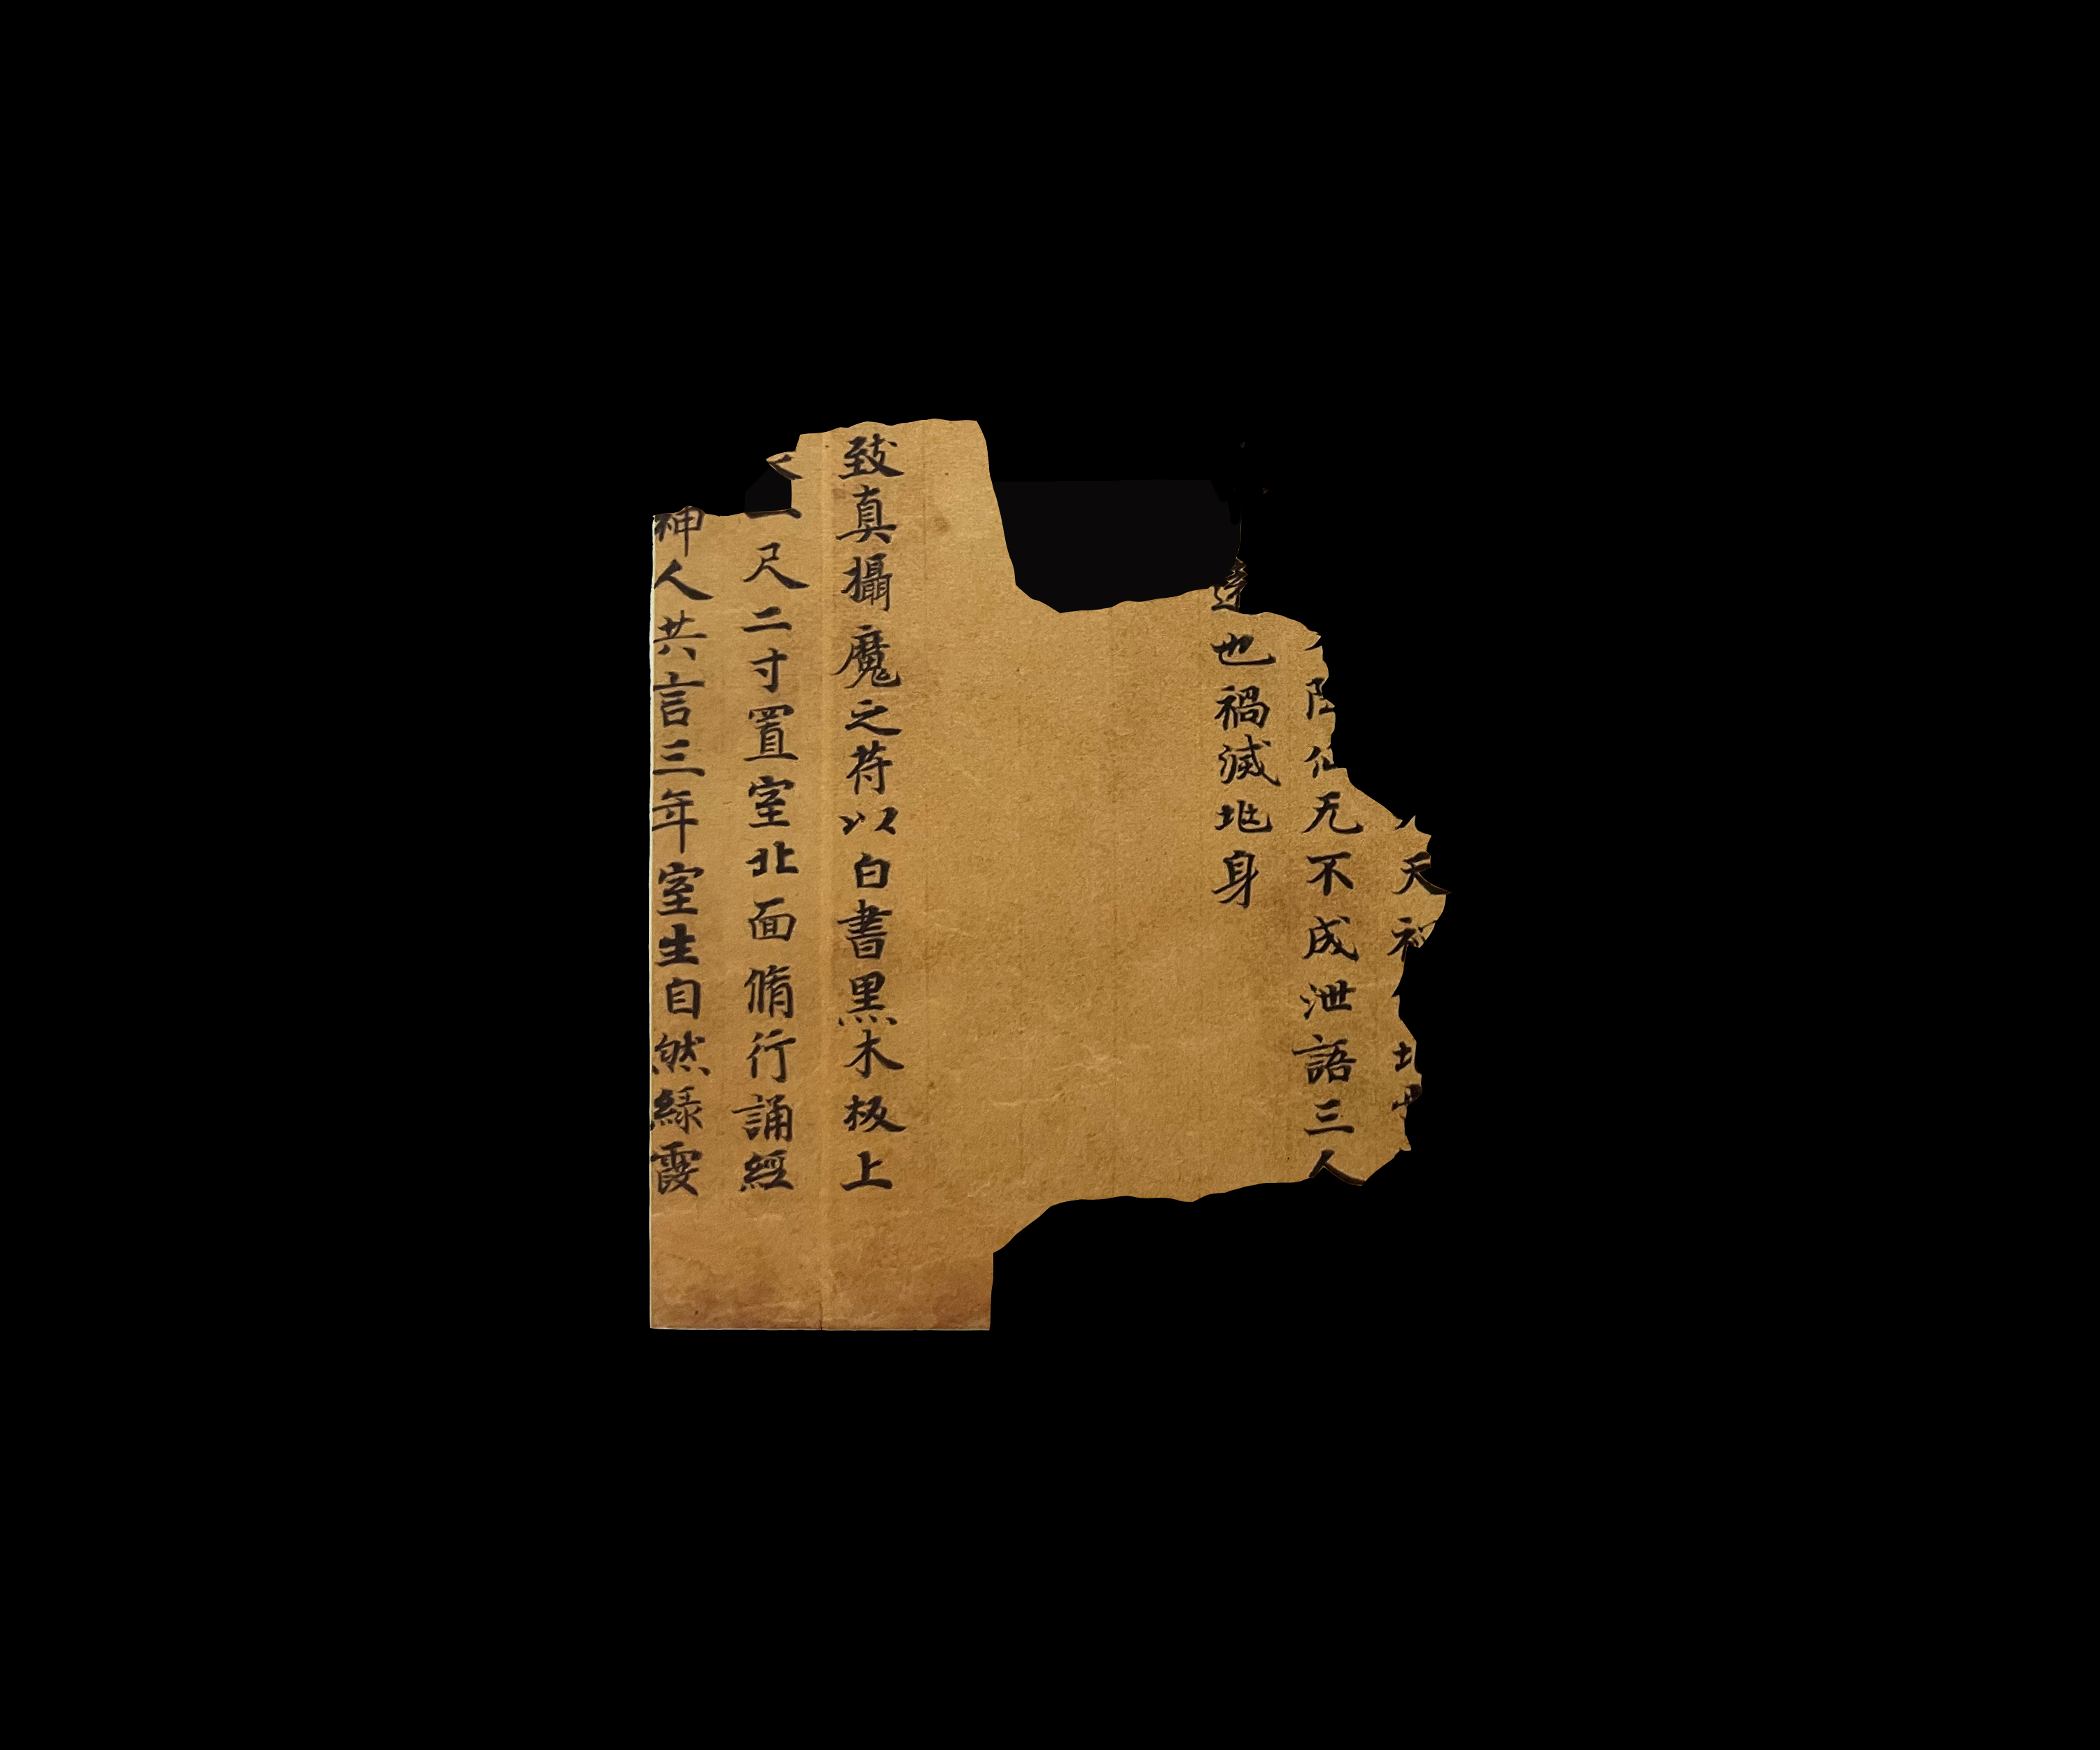 天
仙无不成泄語三人
也禍滅地身
致真攝魔之符以白書黒木板上
尺二寸置室北面脩行誦經
神人共言三年室生自然緑霞